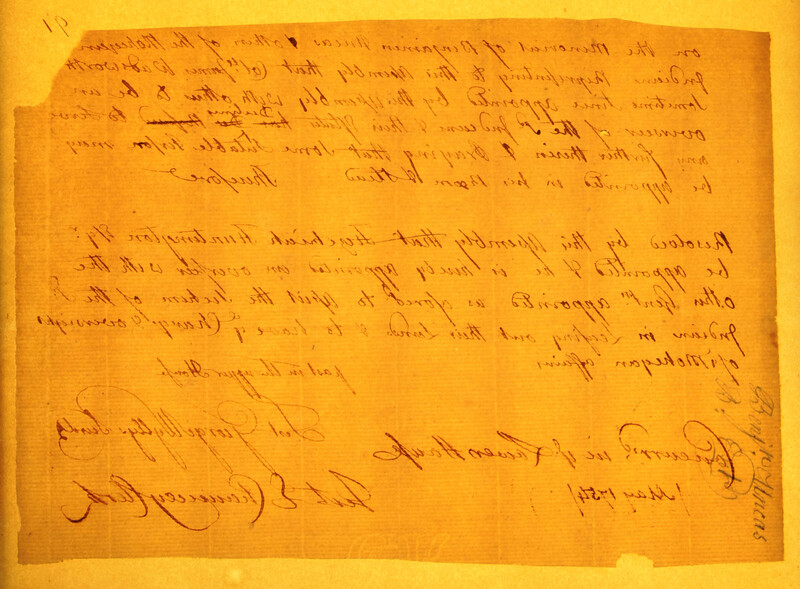 91
on the Memorial of Benjamin Uncas & other of the Mohegan
Indians Representing to this Assembly that Coll James Wadsworth
sometime since appointed by this Assembly with others to be an
overseer of the sd Indians & their Estate has Declined to serve
any further therein & Praying that some sutable person may
be appointed in his Room & stead Therefore
Resolved by this Assembly that Hezekiah Huntington Esqr
be appointed & he is hereby appointed an overseer with the
other Gentmn appointed as aforesd to assist the Indian of the sd
Indian in Leasing out their Lands & to have ye Charge & oversight
of sd Mohegan affairs
past in the upper House
Test George Wyllys Secrety
Concurrd in ye Lower House
Test E Chauncey Clerk
May 1754
Benj: Uncas